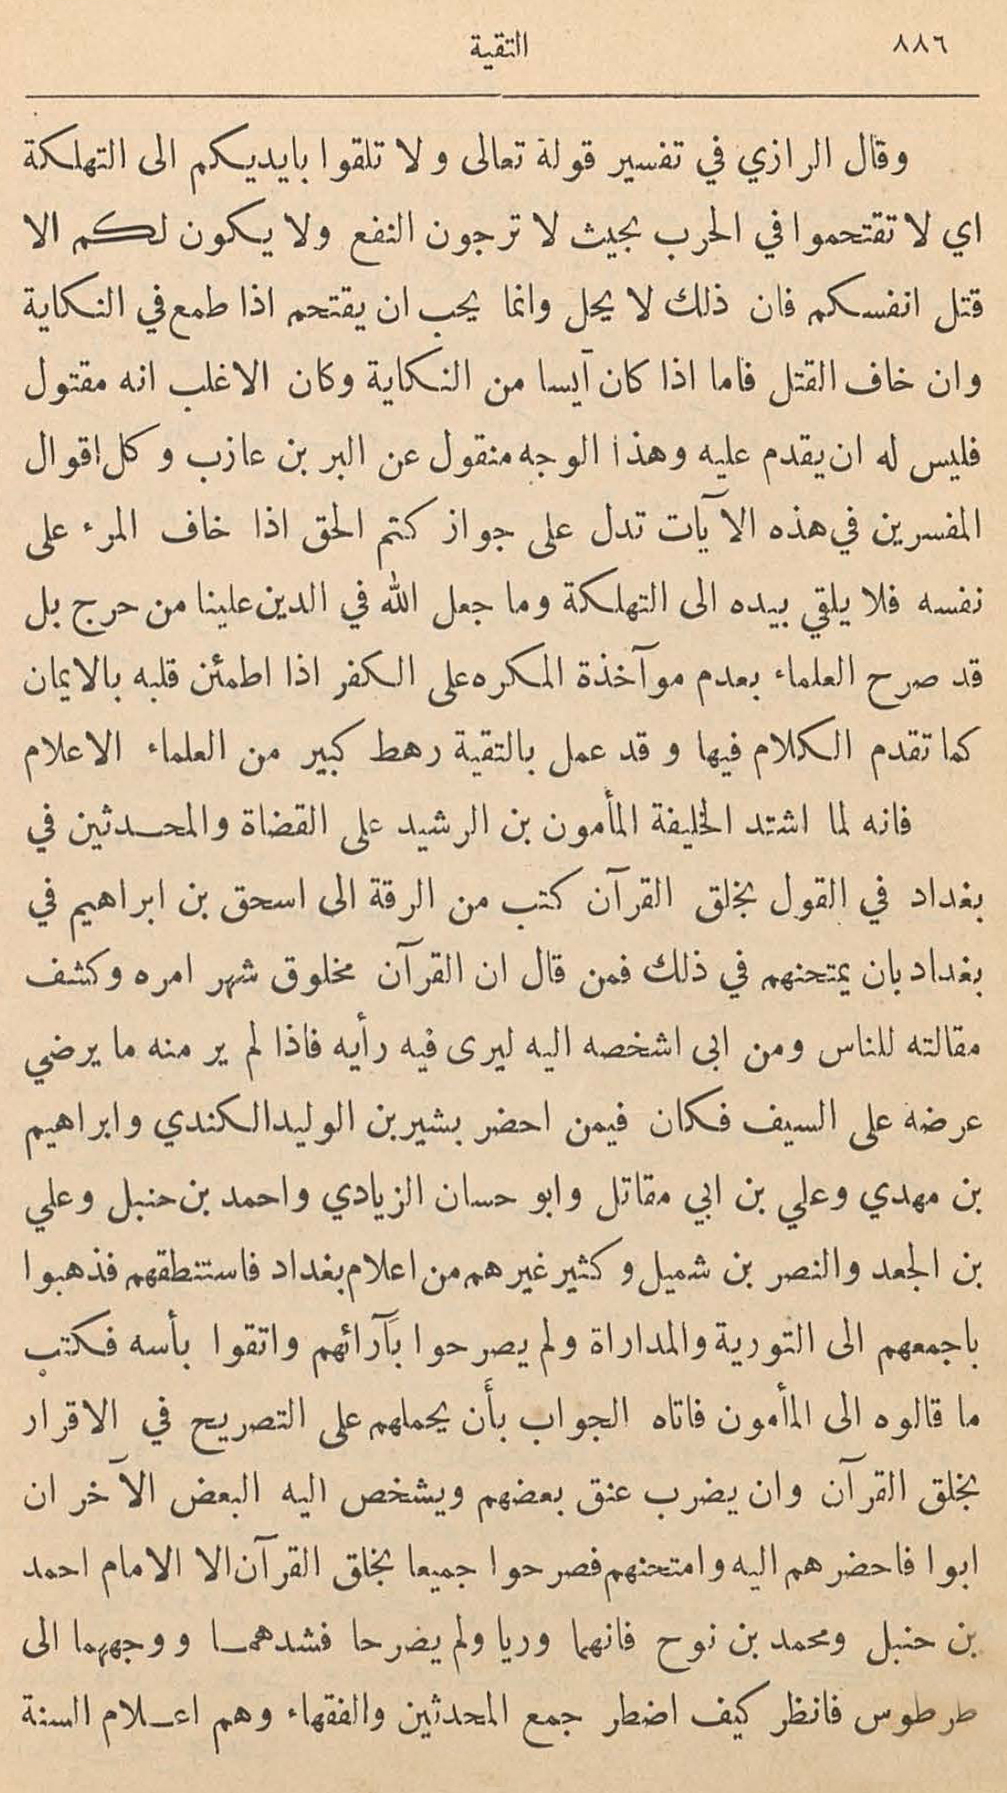 ٨٨٦ التقية
وقال الرازي في تفسير قولة تعالى ولا تلقوا بايديكم الى التهلكة
اي لا تقتحموا في الحرب بحيث لا ترجون النفع ولا يكون لكم الا
قتل انفسكم فان ذلك لا يحل وانما يجب ان يقتحم اذا طمع في النكاية
وان خاف القتل فاما اذا كان آيسا من النكاية وكان الاغلب انه مقتول
فليس له ان يقدم عليه وهذا الوجه منقول عن البر بن عازب وكل اقوال
المفسرين في هذه الآيات تدل على جواز كتم الحق اذا خاف المرء على
نفسه فلا يلقي بيده الى التهلكة وما جعل الله في الدين علينا من حرج بل
قد صرح العلماء بعدم موآخذة المكره على الكفر اذا اطمئن قلبه بالايمان
كما تقدم الكلام فيها وقد عمل بالتقية رهط كبير من العلماء الاعلام
فانه لما اشتد الخليفة المأمون بن الرشيد على القضاة والمحدثين في
بغداد في القول بخلق القرآن كتب من الرقة الى اسحق بن ابراهيم في
بغداد بان يمتحنهم في ذلك فمن قال ان القرآن مخلوق شهر امره وكشف
مقالته للناس ومن ابى اشخصه اليه ليرى فيه رأيه فاذا لم ير منه ما يرضي
عرضه على السيف فكان فيمن احضر بشير بن الوليد الكندي وابراهيم
بن مهدي وعلي بن ابي مقاتل وابو حسان الزيادي واحمد بن حنبل وعلي
بن الجعد والنصر بن شميل وكثير غيرهم من اعلام بغداد فاستنطقهم فذهبوا
باجمعهم الى التورية والمداراة ولم يصرحوا بآرائهم واتقوا بأسه فكتب
ما قالوه الى المأمون فاتاه الجواب بأن يحملهم على التصريح في الاقرار
بخلق القرآن وان يضرب عنق بعضهم ويشخص اليه البعض الآخر ان
ابوا فاحضرهم اليه وامتحنهم فصرحوا جميعا بخلق القرآن الا الامام احمد
بن حنبل ومحمد بن نوح فانهما وريا ولم يضرحا فشدهما ووجههما الى
طرطوس فانظر كيف اضطر جمع المحدثين والفقهاء وهم اعلام السنة